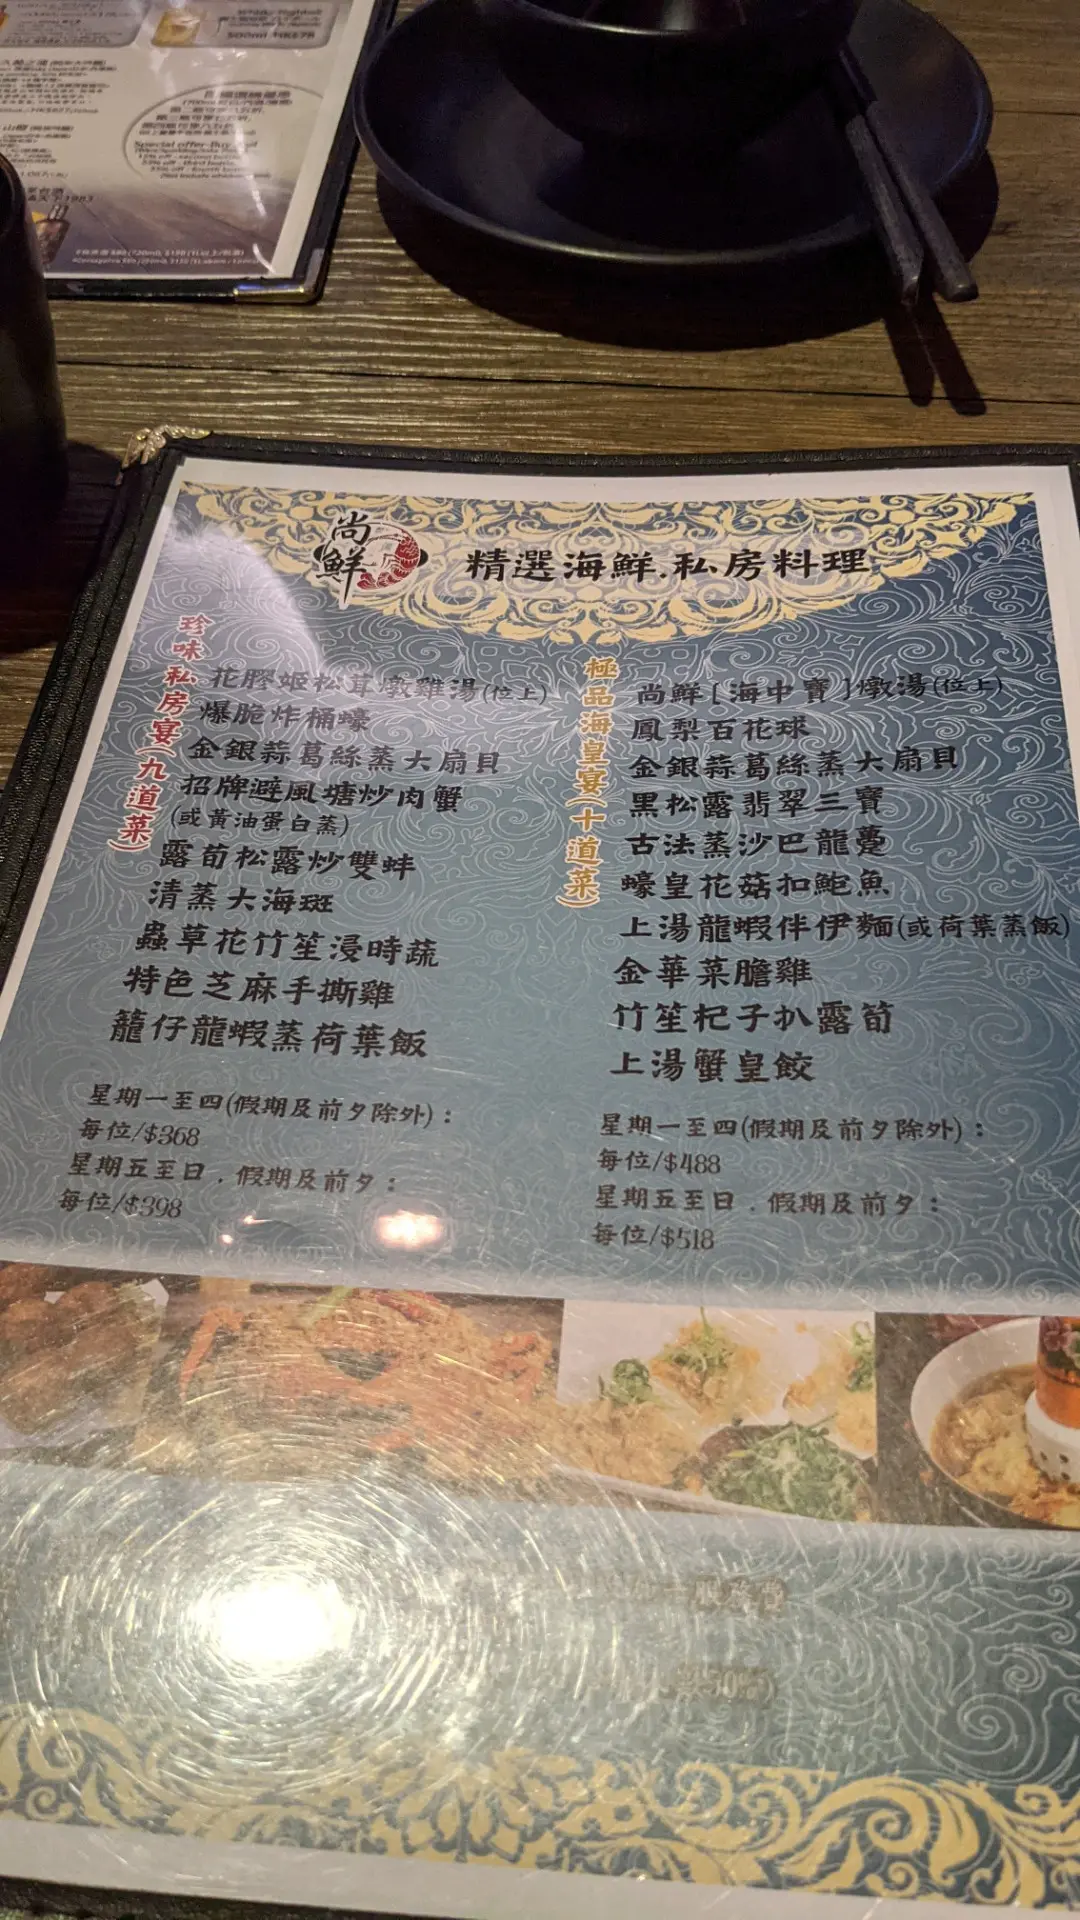 500ml HK$78
Special offer-Buy
尚鮮
精選海鮮.私房料理
珍味私房宴(九道菜)
花膠姬松茸燉雞湯(位上)
爆脆炸桶蠔
金銀蒜葛絲蒸大扇貝
招牌避風塘炒肉蟹
(或黃油蛋白蒸)
露筍松露炒雙蚌
清蒸大海斑
蟲草花竹笙浸時蔬
特色芝麻手撕雞
籠仔龍蝦蒸荷葉飯
星期一至四(假期及前夕除外):
每位/$368
星期五至日.假期及前夕:
每位/$398
極品海皇宴(十道菜)
尚鮮[海中寶]燉湯(位上)
鳳梨百花球
金銀蒜葛絲蒸大扇貝
黑松露翡翠三寶
古法蒸沙巴龍躉
蠔皇花菇扣鮑魚
上湯龍蝦伴伊麵(或荷葉蒸飯)
金華菜膽雞
竹笙杞子扒露筍
上湯蟹皇餃
星期一至四(假期及前夕除外):
每位/$488
星期五至日.假期及前夕:
每位/$518